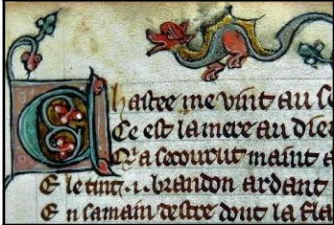 Chastee me vint au s
Ce est la mere au dieu
Q'a secourut maint
E le ting .i. brandon ardant
E n sa main destre dont la fla